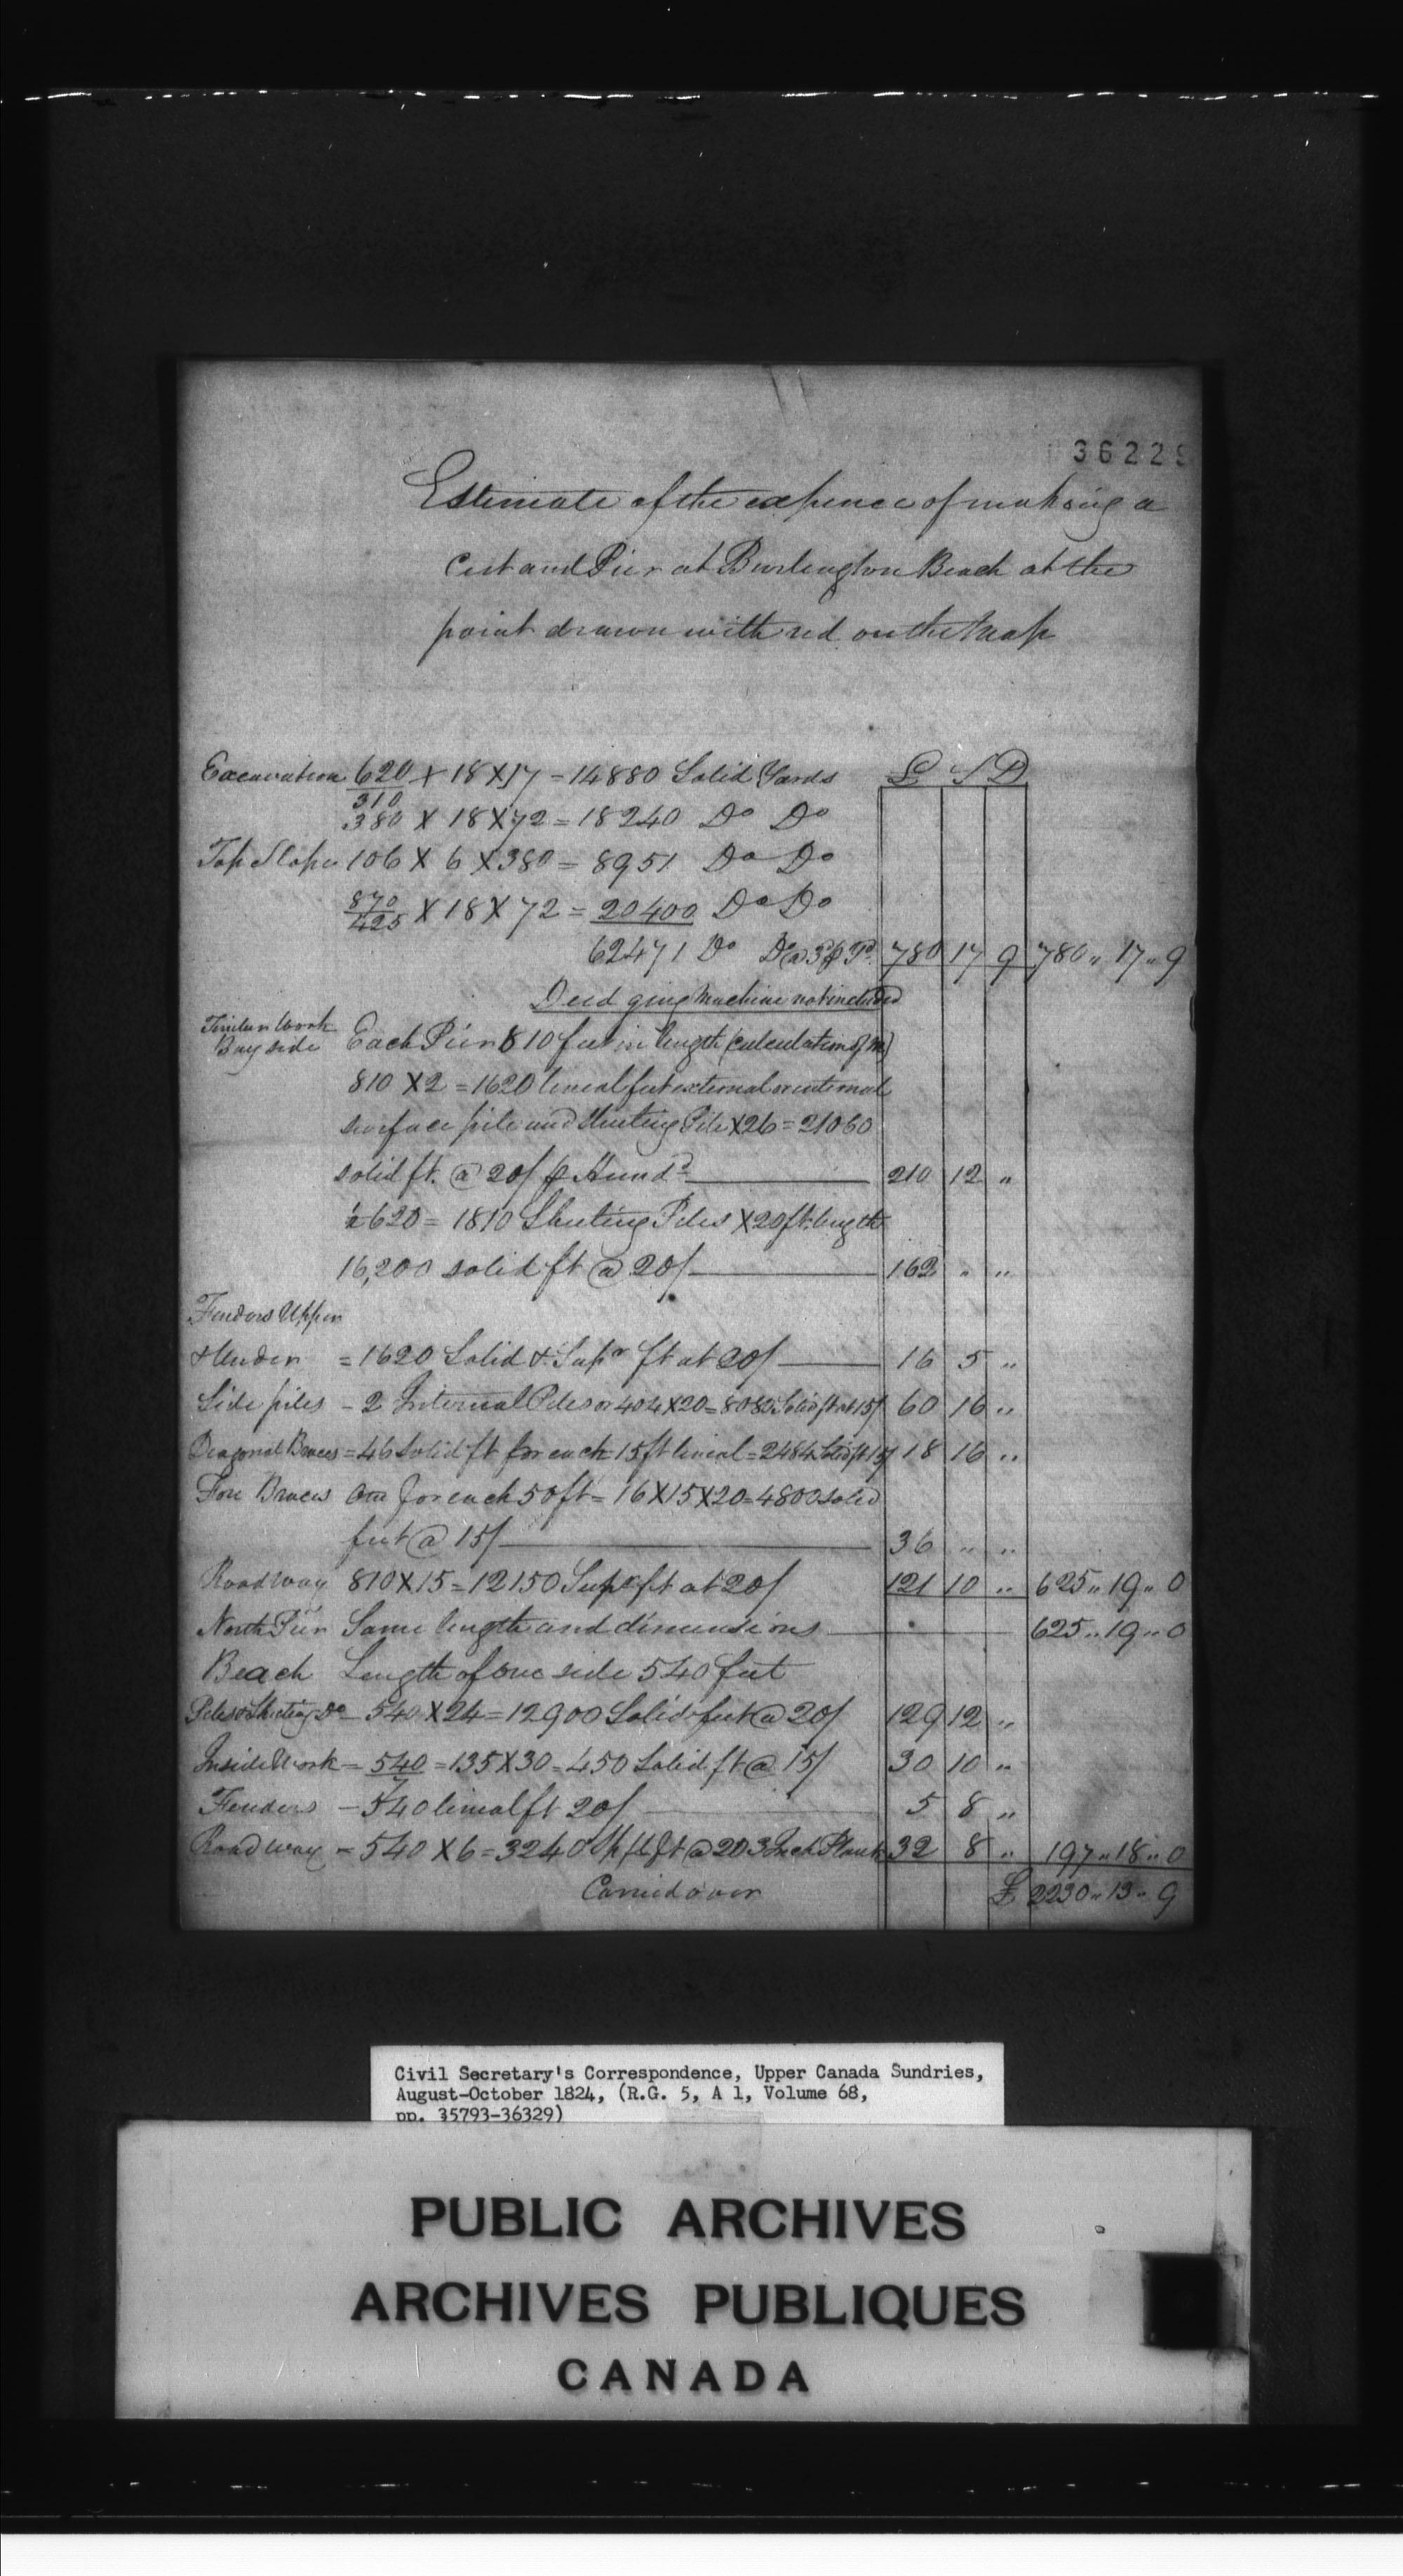 36229
Estimate of the expence of making a
Cut and Pier at Burlington Beach at the
point drawn with red on the Map
£ S D
Excavation 620/310 X 18 X 17 = 14880 Solid Yards
380 X 18 X 72 = 18240 Do Do
Top Slopes 106 X 6 X 380 = 8951 Do Do
870/425 X 18 X 72 = 20400 Do Do
62471 Do Do @ 3d 780 17 9 780 " 17 " 9
Machine not included
Timber Work
Bay side Each Pier 810 feet in length (calculation of
810 X 2 = 1620 lineal feet external or internal
surface pile and Sheeting Pile X 26 = 21060
solid ft. @ 20/ p Hund. 210 12 "
1620 = 1810 Sheeting Piles X 20 ft. length
16,200 solid ft @ 20/ 162 " "
Fenders Upper
& Under = 1620 Solid & Supr ft at 20/ 16 5 "
Side piles - 2 Internal Piles or 404 X 20 = 8080 Solid ft at 15/ 60 16 "
Diagonal Braces = 46 Solid ft for each = 15 ft lineal = 2484 Solid ft 15/ 18 16 "
Fore Braces One for each 50 ft = 16 X 15 X 20 = 4800 solid
feet @ 15/ 36 " "
Roadway 810 X 15 = 12150 Supr ft at 20/ 121 10 " 625 " 19 " 0
North Pier Same length and dimensions 625 " 19 " 0
Beach Length of one side 540 feet
Piles & Sheeting Do - 540 X 24 = 12900 Solid feet @ 20/ 129 12 "
Inside Work - 540 = 135 X 30 = 450 Solid ft @ 15/ 30 10 "
Fenders - 540 lineal ft 20/ 5 8 "
Roadway - 540 X 6 = 3240 ft @ 20 3 Inch Plank 32 8 " 197 " 18 " 0
Carried over £ 2230 " 13 " 9
Civil Secretary's Correspondence, Upper Canada Sundries,
August-October 1824, (R.G. 5, A 1, Volume 68,
pp. 35793-36329)
PUBLIC ARCHIVES
ARCHIVES PUBLIQUES
CANADA